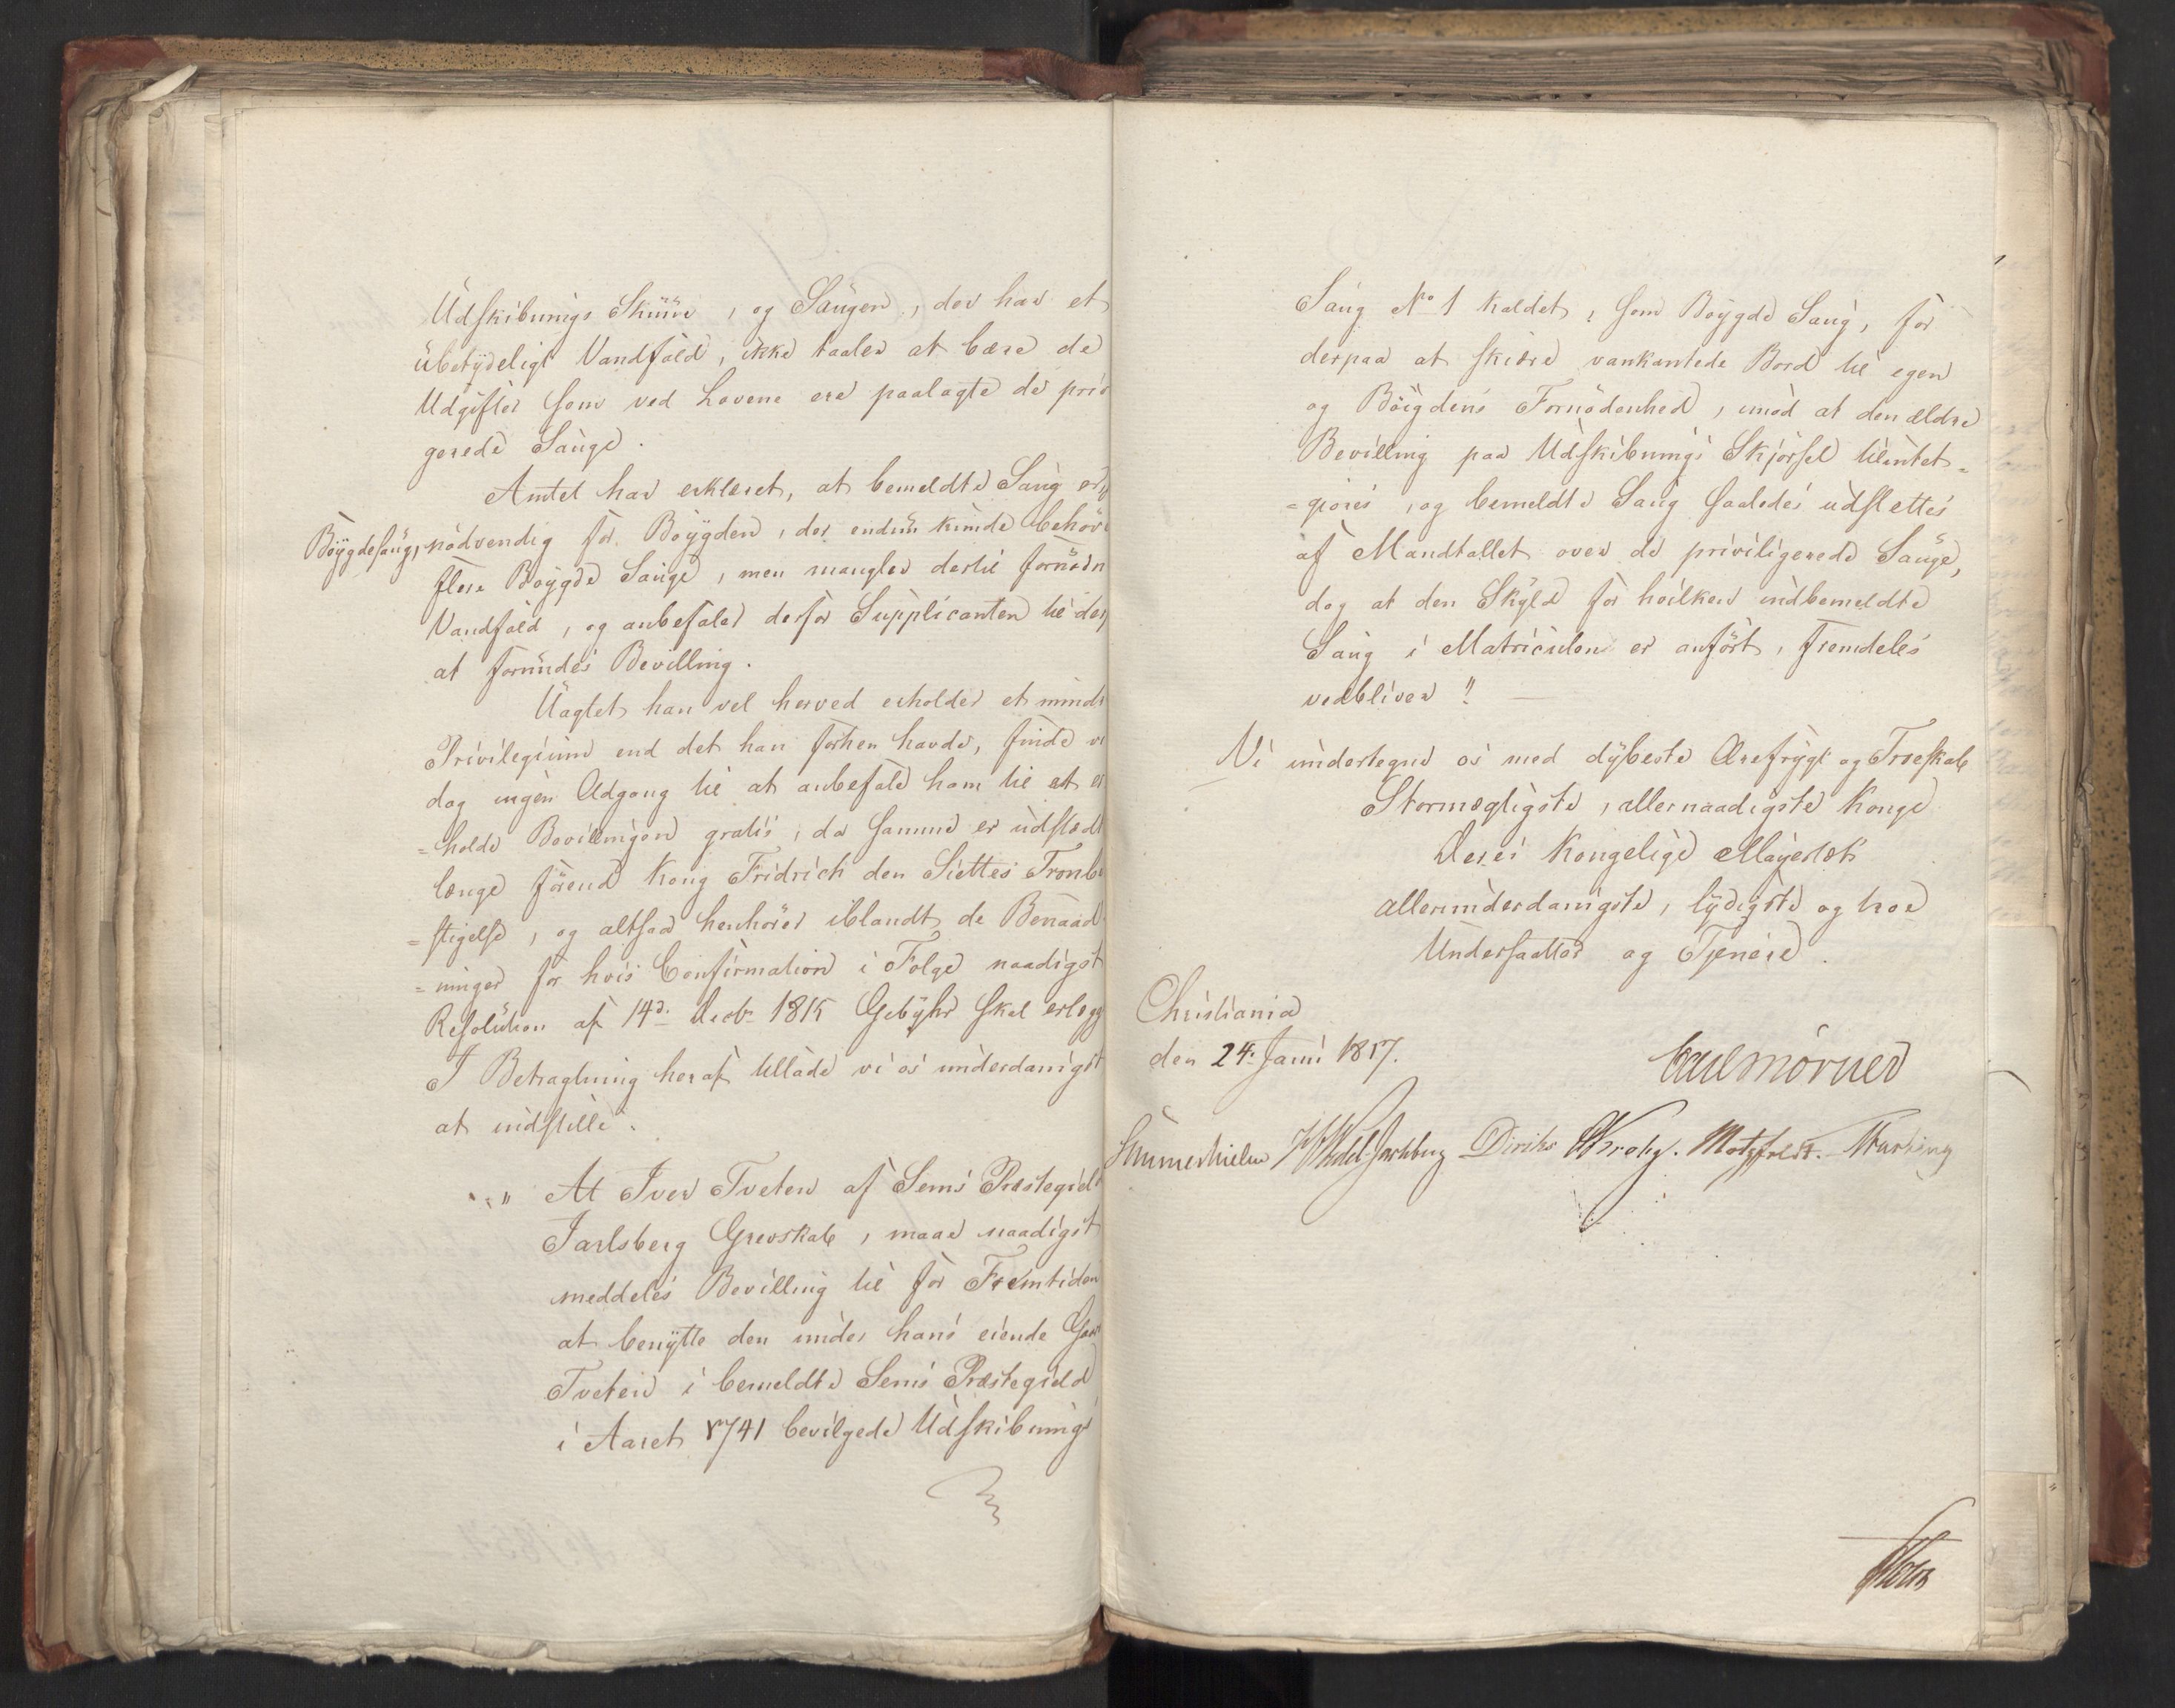 Udskibnings Skuur, og Saugen, der har et
ubetydeligt Vandfald, ikke taaler at bære de
Udgifter som ved Lovene ere paalagte de privi
gerede Sauge.
Amtet har erklæret, at bemeldte Saug er
Böygdesaug, nödvendig for Böygden, der endnu kunde behöve
flere Böygde Sauge, men mangler dertil fornödn
Vandfald, og anbefaler derfor Supplicanten til den
at forundes Bevilling.
Uagtet han vel herved erholder et mindre
Privilegium end det han forhen havde, finde vi
dog ingen Adgang til at anbefale ham til at er
=holde Bevilingen gratis, da samme er udstædt
længe förend Kong Fridrich den Siettes Tronbe
=stigelse, og altsaa henhörer iblandt de Benaad
=ninger for hvis Confirmation i Fölge naadigst
Resolution af 14d. Decbr 1815 Gebyhr skal erlægg
I Betragtning heraf tillade vi os underdanigst
at indstille:
"At Iver Tveten af Sems Præstegield
Jarlsberg Grevskab, maae naadigst
meddeles Bevilling til for Fremtiden
at benytte den under hans eiende Gaard
Tveten i bemeldte Sems Præstegield
i Aaret 1741 bevilgede Udskibnings
Saug No 1 kaldet, som Böygde Saug, for
derpaa at skiære vankantede Bord til egen
og Böigdens Fornödenhed, imod at den ældre
Bevilling paa Udskibnings Skjörsel tilintet=
=giöres, og bemeldte Saug saaledes udslettes
af Mandtallet over de priviligerede Sauge,
dog at den Skyld for hvilken indbemeldte
Saug i Matriculen er anfört, fremdeles
vedbliver"
Vi undertegne os med dybeste Ærefrygt og Troeskab
Stormægtigste, allernaadigste Konge
Deres Kongelige Majestæts
allerunderdanigste, lydigste og troe
Undersaatter og Tjenere.
Christiania
den 24. Janu 1817.
Carl Mörner
Sommerhielm HWedel-Jarlsberg Diriks Krohg. Motzfeldt. Fasting
Holst